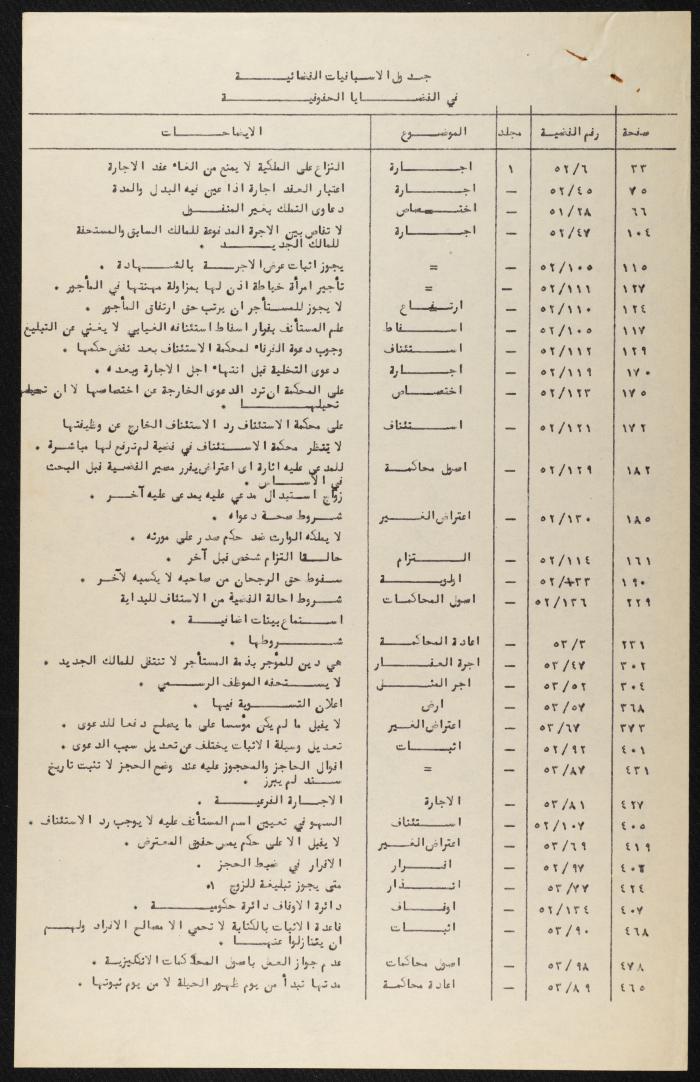 جدول الاسبقيات القضائية
في القضايا الحقوقية
صفحة رقم القضية مجلد الموضوع الايضاحات
٣٣ ٥٢/٦ ١ اجارة النزاع على الملكية لا يمنع من الغاء عقد الاجارة
٧٥ ٥٢/٤٥ — اجارة اعتبار العقد اجارة اذا عين فيه البدل والمدة
٦٦ ٥١/٢٨ — اختصاص دعاوى التملك بغير المنقول
١٠٤ ٥٢/٤٧ — اجارة لا تقاص بين الاجرة المدفوعة للمالك السابق والمستحقة
للمالك الجديد .
١١٥ ٥٢/١٠٥ — = يجوز اثبات عرض الاجرة بالشهادة .
١٢٧ ٥٢/١١١ — = تأجير امرأة خياطة اذن لها بمزاولة مهنتها في المأجور .
١٢٤ ٥٢/١١٠ — ارتفاع لا يجوز للمستأجر ان يرتب حق ارتفاق المأجور .
١١٧ ٥٢/١٠٥ — اسقاط علم المستأنف بقرار اسقاط استئنافه الغيابي لا يغني عن التبليغ
١٢٩ ٥٢/١١٢ — استئناف وجوب دعوة الفرقاء لمحكمة الاستئناف بعد نقض حكمها .
١٧٠ ٥٢/١١٩ — اجارة دعوى التخلية قبل انتهاء اجل الاجارة وبعده .
١٧٥ ٥٢/١٢٣ — اختصاص على المحكمة ان ترد الدعوى الخارجة عن اختصاصها لا ان
تحيلها .
١٧٢ ٥٢/١٢١ — استئناف على محكمة الاستئناف رد الاستئناف الخارج عن وظيفتها
لا تنظر محكمة الاستئناف في قضية لم ترفع لها مباشرة .
١٨٢ ٥٢/١٢٩ — اصول محاكمة للمدعى عليه اثارة اى اعتراض يقرر مصير القضية قبل البحث
في الاساس .
زواج استبدال مدعي عليه بمدعى عليه آخر .
١٨٥ ٥٢/١٣٠ — اعتراض الغير شروط صحة دعواه .
لا يملكه الوارث ضد حكم صدر على مورثه .
١٦١ ٥٢/١١٤ — التزام التزام شخص قبل آخر .
١٩٠ ٥٢/١٣٣ — اولوية سقوط حق الرجحان من صاحبه لا يكسبه لآخر .
٢٢٩ ٥٢/١٣٦ — اصول المحاكمات شروط احالة القضية من الاستئناف للبداية
استماع بينات اضافية .
٢٣١ ٥٣/٣ — اعادة المحاكمة شروطها .
٣٠٢ ٥٣/٤٧ — اجرة العقار هي دين للمؤجر بذمة المستأجر لا تنتقل للمالك الجديد .
٣٠٤ ٥٣/٥٢ — اجر المثل لا يستحقه الموظف الرسمي .
٣٦٨ ٥٣/٥٧ — ارض اعلان التسوية فيها .
٣٧٣ ٥٣/٦٧ — اعتراض الغير لا يقبل ما لم يكن مؤسسا على ما يصلح دفعا للدعوى .
٤٠١ ٥٢/٩٢ — اثبات تعديل وسيلة الاثبات يختلف عن تعديل سبب الدعوى .
٤٣١ ٥٣/٨٧ — = اقوال الحاجز والمحجوز عليه عند وضع الحجز لا تثبت تاريخ
سند لم يبرز .
٤٢٧ ٥٣/٨١ — الاجارة الاجارة الفرعية .
٤٠٥ ٥٢/١٠٧ — استئناف السهو في تعيين اسم المستأنف عليه لا يوجب رد الاستئناف .
٤١٩ ٥٣/٦٩ — اعتراض الغير لا يقبل الا على حكم يمس حقوق المعترض .
٤٠٣ ٥٢/٩٧ — اقرار الاقرار في ضبط الحجز .
٤٢٤ ٥٣/٧٧ — انذار متى يجوز تبليغة للزوج
٤٠٧ ٥٢/١٣٤ — اوقاف دائرة الاوقاف دائرة حكومية .
٤٦٨ ٥٣/٩٠ — اثبات قاعدة الاثبات بالكتابة لا تحمي الا مصالح الافراد ولهم
ان يتنازلوا عنها .
٤٧٨ ٥٣/٩٨ — اصول محاكمات عدم جواز العمل باصول المحاكمات الانكليزية .
٤٦٥ ٥٣/٨٩ — اعادة محاكمة مدتها تبدأ من يوم ظهور الحيلة لا من يوم ثبوتها .